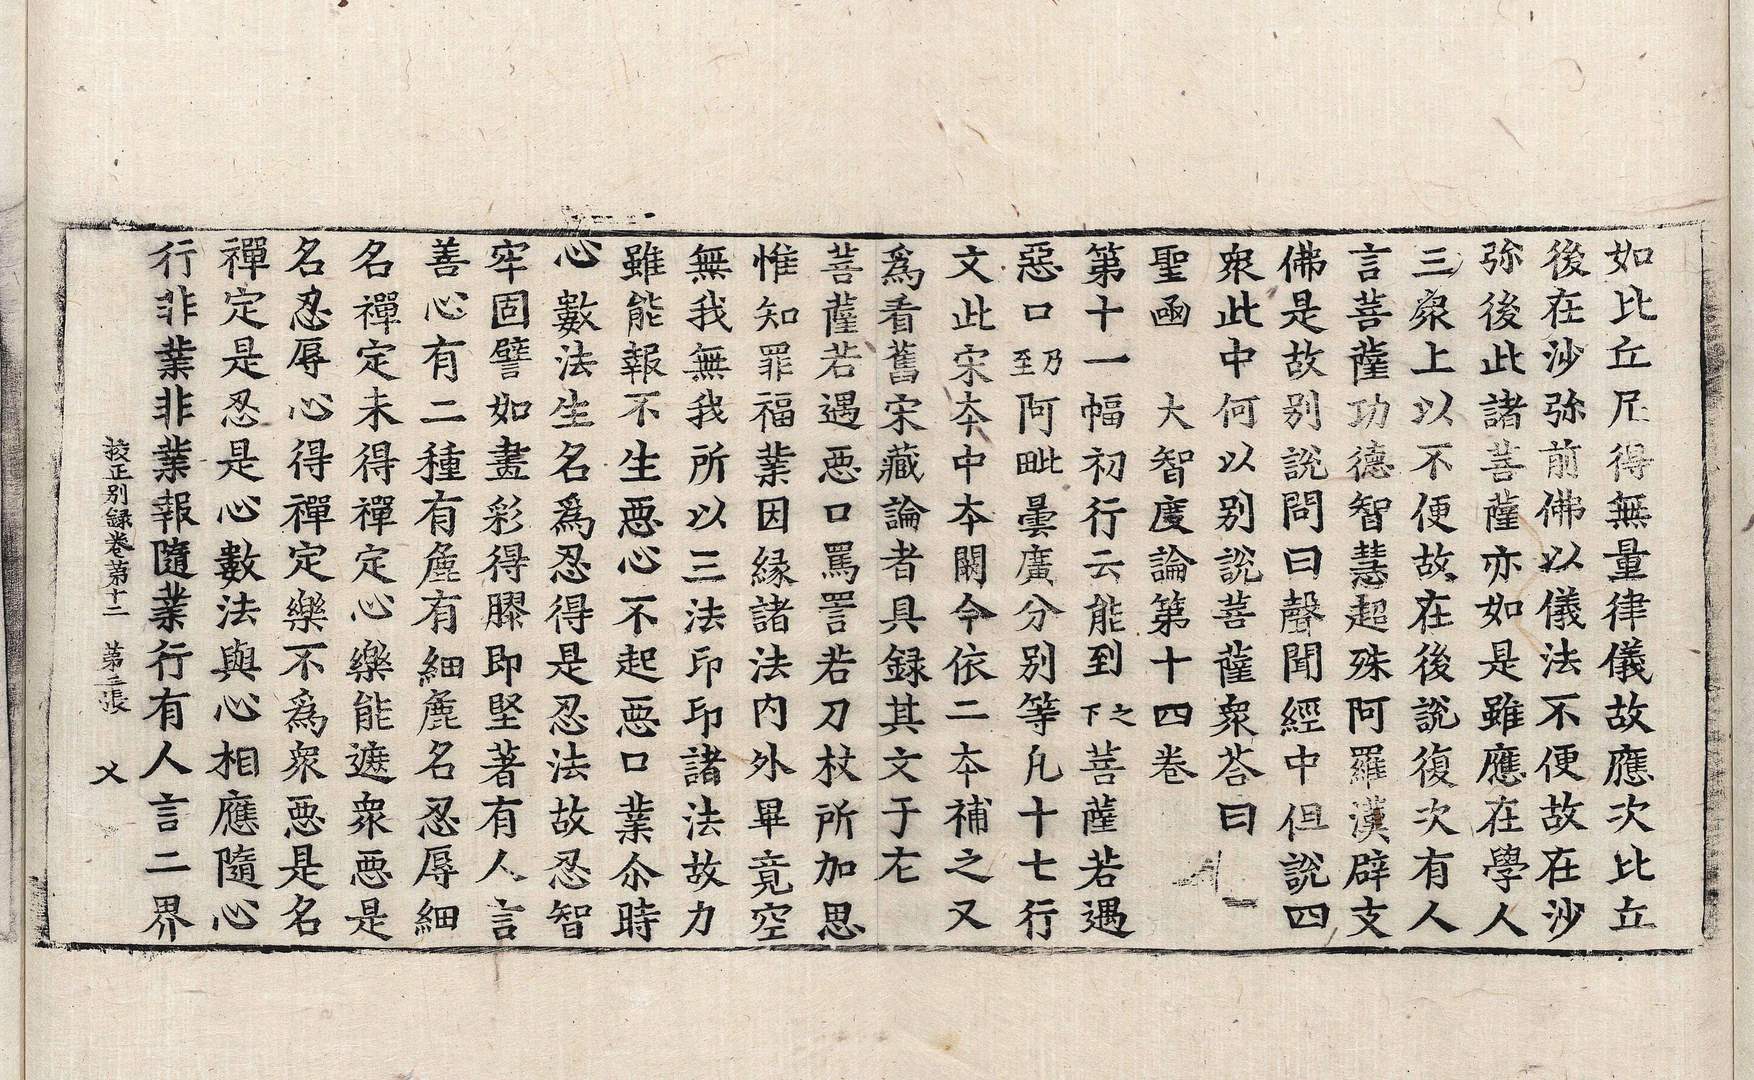 如比丘尼得無量律儀故應次比丘
後在沙弥前佛以儀法不便故在沙
弥後此諸菩薩亦如是雖應在學人
三衆上以不便故在後說復次有人
言菩薩功德智慧超殊阿羅漢辟支
佛是故别說問曰聲聞經中但說四
衆此中何以别說菩薩衆荅曰
聖凾　大智度論第十四卷
第十一幅初行云能到之下菩薩若遇
惡口乃至阿毗曇廣分别等凡十七行
文此宋夲中夲闕今依二夲補之又
爲看舊宋藏論者具録其文于左
菩薩若遇惡口罵詈若刀杖所加思
惟知罪福業因緣諸法内外畢竟空
無我無我所以三法印印諸法故力
雖能報不生惡心不起惡口業尒時
心數法生名爲忍得是忍法故忍智
牢固譬如畫彩得膠即堅著有人言
善心有二種有麁有細麁名忍辱細
名禪定未得禪定心樂能遮衆惡是
名忍辱心得禪定樂不爲衆惡是名
禪定是忍是心數法與心相應隨心
行非業非業報隨業行有人言二界
挍正别録卷第十二　第三張　义